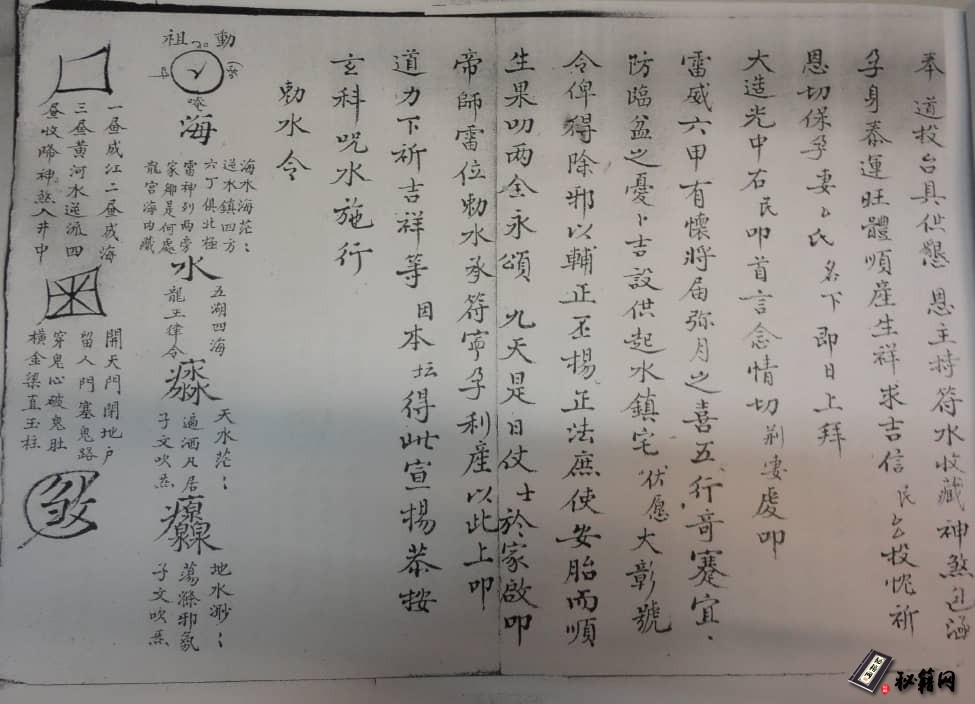 奉道投台具供懇恩主持符水收藏神煞包涵
孕身泰運旺體順産生祥求吉信民厶投忱祈
恩切保孕妻厶氏名下即日上拜
大造光中右民叩首言念情切荆妻虔叩
雷威六甲有懷將届弥月之喜五行竒蹇宜
防臨盆之憂卜吉設供起水鎮宅伏愿大彰號
令俾得除邪以輔正丕楊正法庶使安胎而順
生果叨两全永頌九天是日仗士於家啟叩
帝師雷位勅水承符寧孕利産以此上叩
道力下祈吉祥等因本坛得此宣揚恭按
玄科咒水施行
勅水令
祖動
唵
海
海水海茫〻
逆水鎮四方
六丁俱北極
雷神列两旁
家鄉是何處
龍宫海内藏
水
五湖四海
龍王律令
天水茫〻
遍洒凡居
子文吹炁
地水渺〻
蕩滌邪氛
子文吹炁
一昼成江二昼成海
三昼黄河水逆流四
昼收降神煞入井中
開天門閉地户
留人門塞鬼路
穿鬼心破鬼肚
橫金梁直玉柱
秘籍网